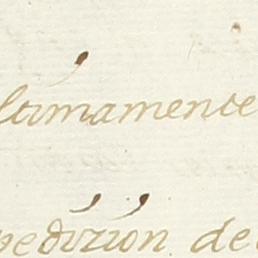 ltimamente
pedizion de